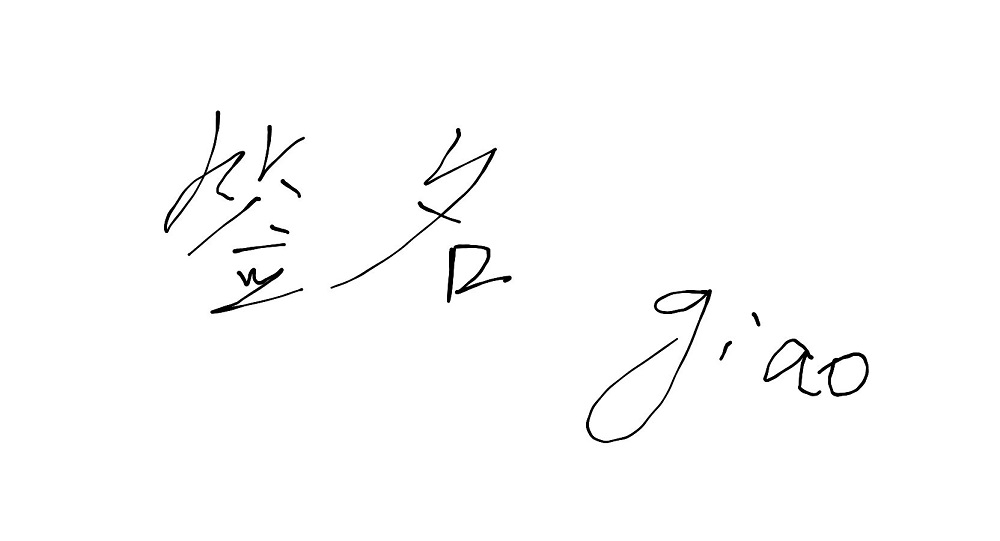 签名
giao